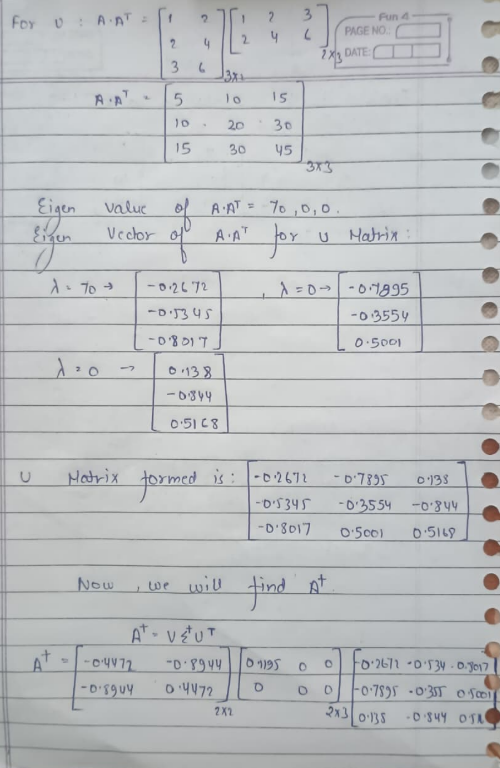 For U : A·Aᵀ = [1 2; 2 4; 3 6]₃ₓ₂ [1 2 3; 2 4 6]₂ₓ₃
Fun 4
PAGE NO.:
DATE:
A·Aᵀ = [5 10 15; 10 20 30; 15 30 45]₃ₓ₃
Eigen Value of A·Aᵀ = 70, 0, 0.
Eigen Vector of A·Aᵀ for U Matrix:
λ = 70 → [-0.2672; -0.5345; -0.8017] , λ = 0 → [-0.7895; -0.3554; 0.5001]
λ = 0 → [0.138; -0.844; 0.5168]
U Matrix formed is: [-0.2672 -0.7895 0.138; -0.5345 -0.3554 -0.844; -0.8017 0.5001 0.5168]
Now, we will find A⁺
A⁺ = VΣ⁺Uᵀ
A⁺ = [-0.4472 -0.8944; -0.8944 0.4472]₂ₓ₂ [0.1195 0 0; 0 0 0]₂ₓ₃ [-0.2672 -0.534 -0.8017; -0.7895 -0.355 0.5001; 0.138 -0.844]